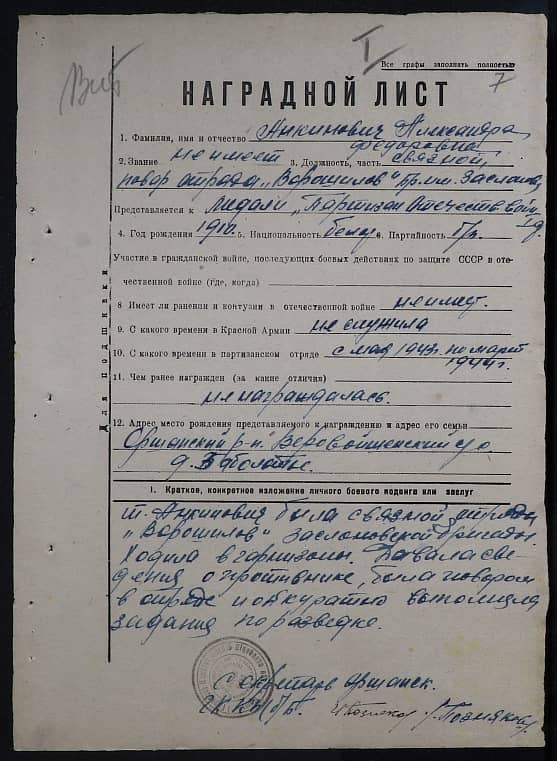 Вио
I
Все графы заполнять полностью
7
НАГРАДНОЙ ЛИСТ
1. Фамилия, имя и отчество Анкинович Александра
Федоровна
2. Звание не имеет 3. Должность, часть связной,
повар отряда „Ворошилов" бр. им. Заслонова
Представляется к медали „Партизан Отечеств. войн"
I ст.
4. Год рождения 1910. 5. Национальность белор. 6. Партийность б/п.
Участие в гражданской войне, последующих боевых действиях по защите СССР в оте-
чественной войне (где, когда)
8 Имеет ли ранения и контузии в отечественной войне не имеет.
9. С какого времени в Красной Армии не служила
10. С какого времени в партизанском отряде с мая 1943г. по март
1944г.
11. Чем ранее награжден (за какие отличия)
не награждалась.
12. Адрес место рождения представляемого к награждению и адрес его семьи
Оршанский р-н. Веровойшенский с/с.
д. Заболотье.
Для подшивки
I. Краткое, конкретное изложение личного боевого подвига или заслуг
т. Анкинович была связной отряда
„Ворошилов" Заслоновской бригады.
Ходила в гарнизоны. Давала све-
дения о противнике, была поваром
в отряде и аккуратно выполняла
задания по разведке.
Секретарь Оршанск.
РК КП/б/Б.
Позняков